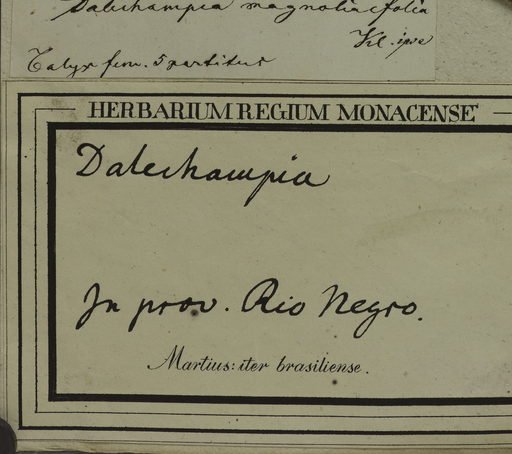 Dalechampia magnoliaefolia
Kl. ipse
Calyx fem. 5 partitus
HERBARIUM REGIUM MONACENSE
Dalechampia
In prov. Rio Negro.
Martius: iter brasiliense.